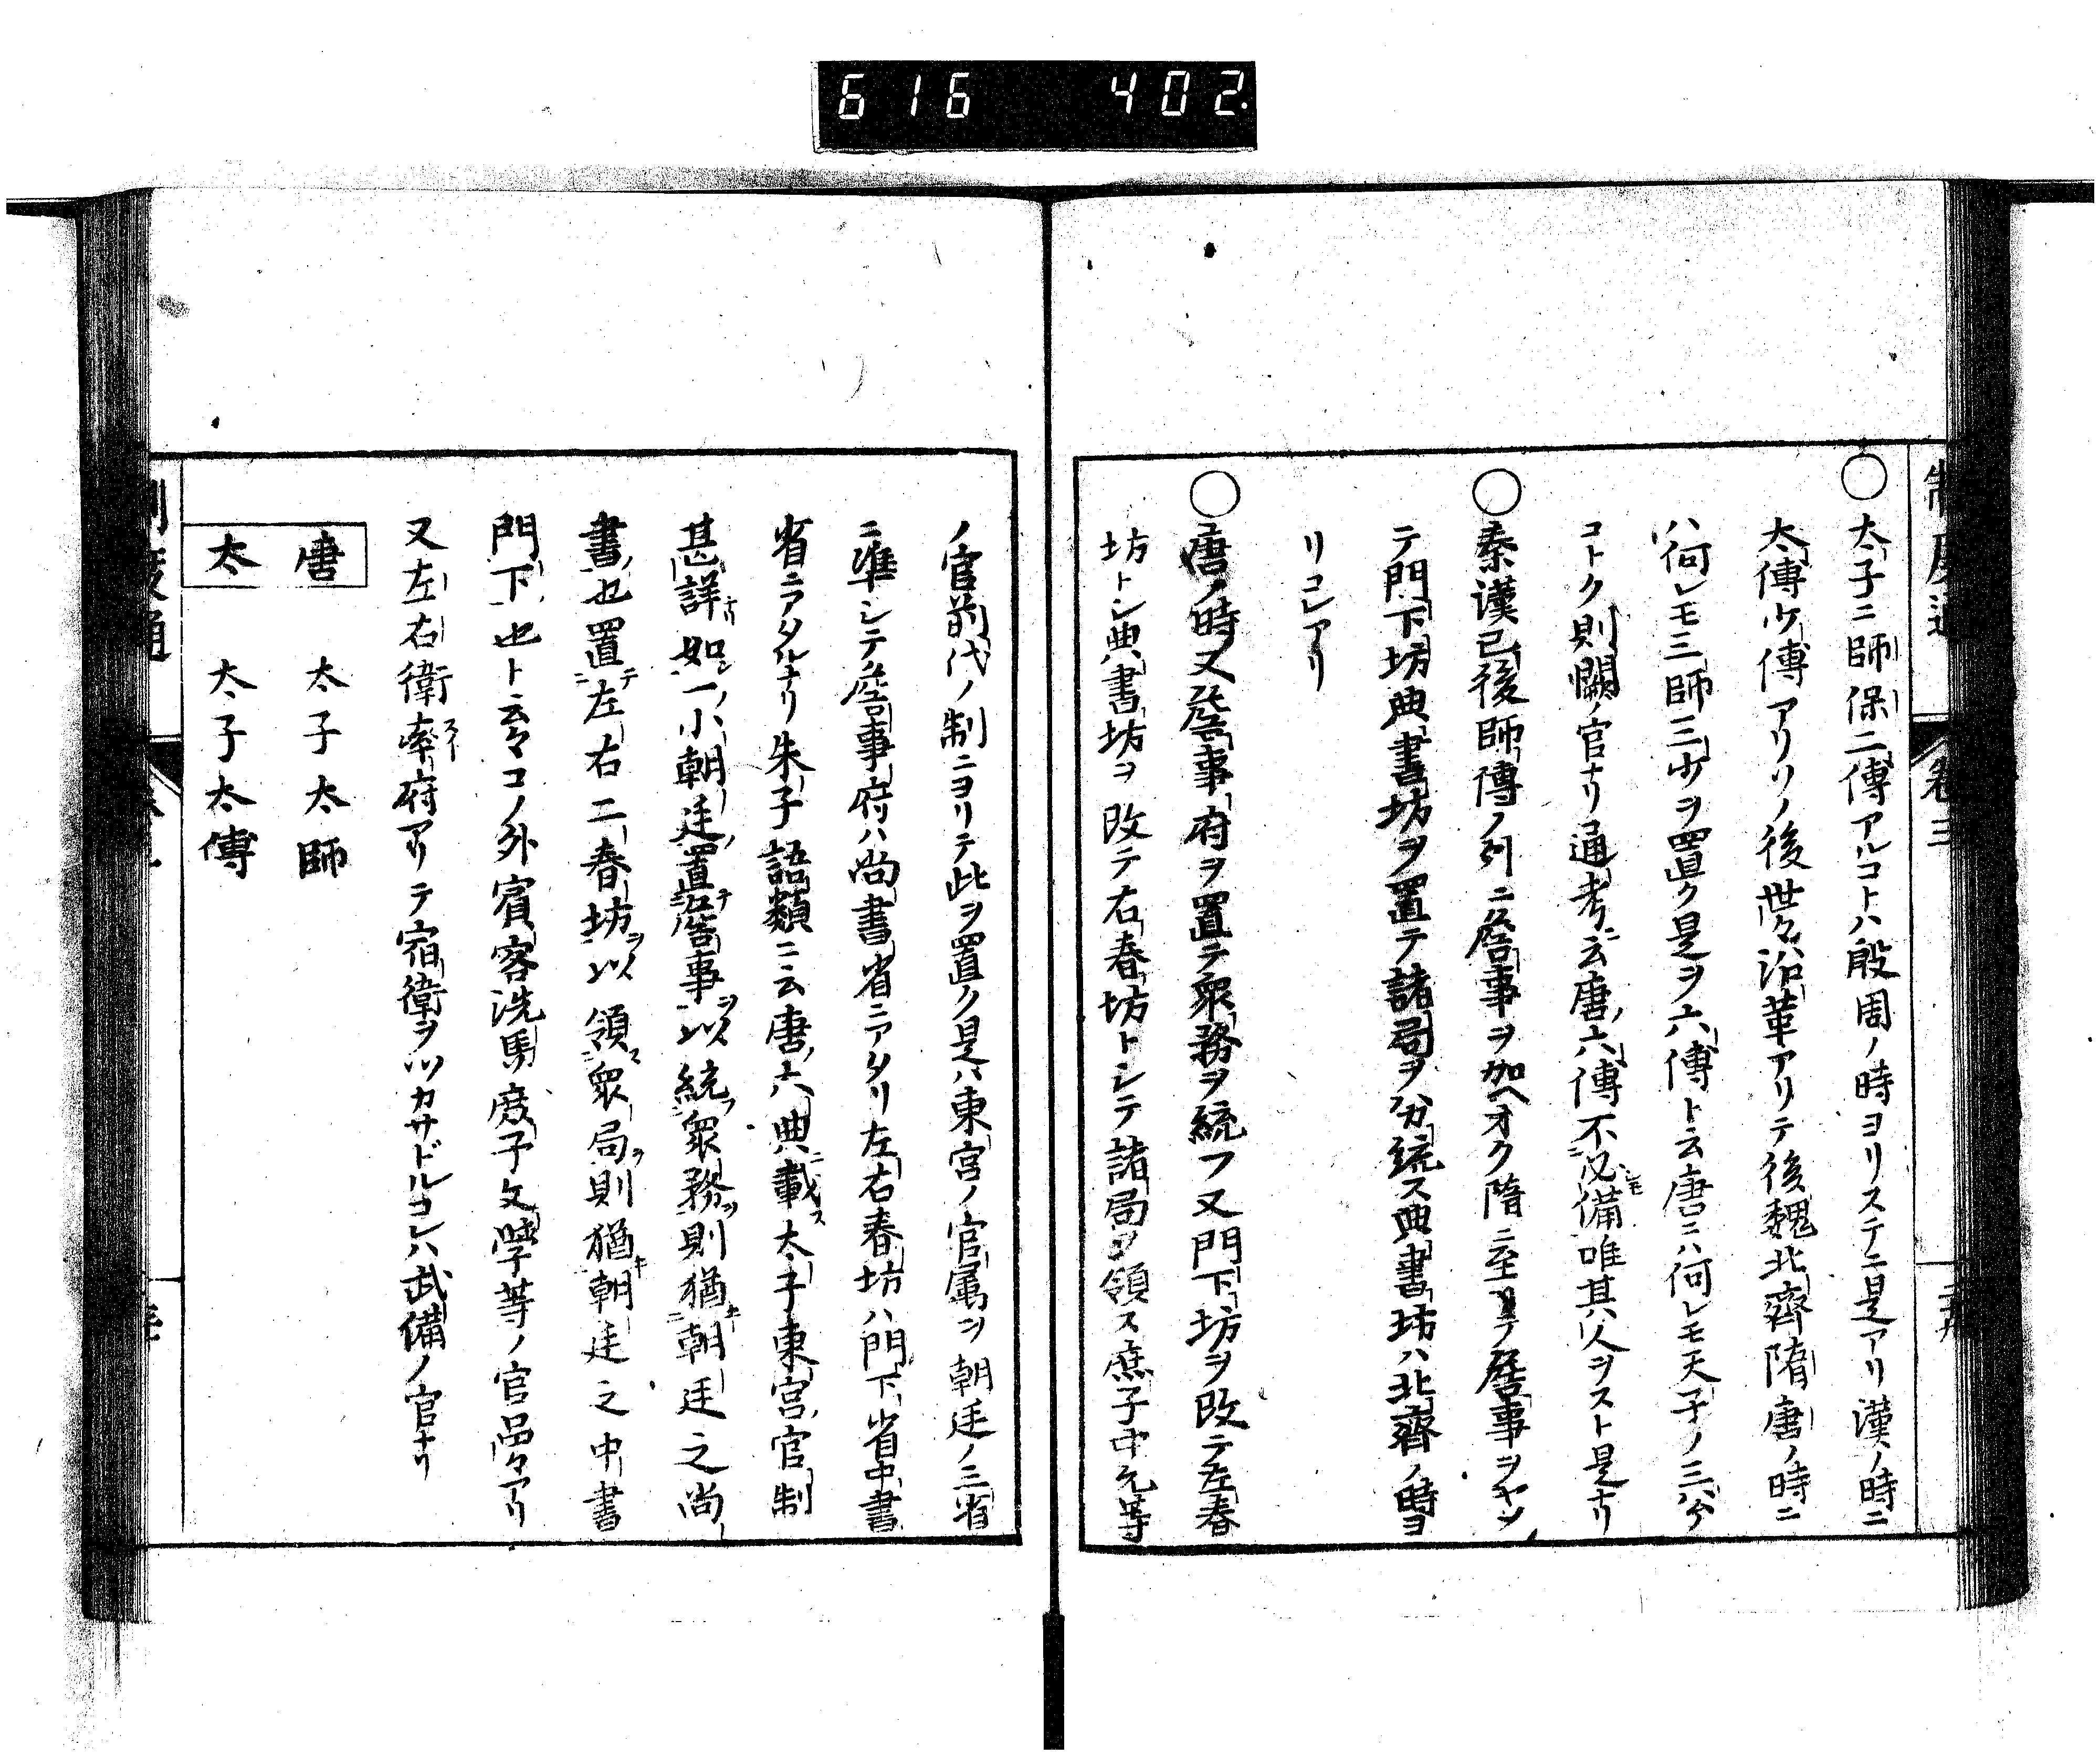 616 402
制度通 卷三
○太子ニ師保二傅アルコトハ殷周ノ時ヨリステニ是アリ漢ノ時ニ
太傅少傅アリソノ後世々沿革アリテ後魏北齊隋唐ノ時ニ
ハ何レモ三師三少ヲ置ク是ヲ六傅ト云唐ニハ何レモ天子ノ三公ノ
コトク則闕ノ官ナリ通考ニ云唐ノ六傅不必備唯其人ヲスト是ナリ
○秦漢已後師傅ノ列ニ詹事ヲ加ヘオク隋ニ至リテ詹事ヲヤメ
テ門下坊典書坊ヲ置テ諸局ヲ分統ス典書坊ハ北齊ノ時ヨ
リコレアリ
○唐ノ時又詹事府ヲ置テ衆務ヲ統フ又門下坊ヲ改テ左春
坊トシ典書坊ヲ改テ右春坊トシテ諸局ヲ領ス庶子中允等
ノ官前代ノ制ニヨリテ此ヲ置ク是ハ東宮ノ官属ヲ朝廷ノ三省
ニ準シテ詹事府ハ尚書省ニアタリ左右春坊ハ門下省中書
省ニアタルナリ朱子語類ニ云唐ノ六典ニ載ス太子東宮ノ官制
甚詳ナリ如シ一ノ小朝廷ノ置テ詹事ヲ以ス統フ衆務ヲ則猶キ朝廷之尚
書ノ也置テ左右二春坊ヲ以ス領ス衆局ヲ則猶キ朝廷之中書
門下ノ也ト云々コノ外賓客洗馬庶子文學等ノ官品々アリ
又左右衛率府アリテ宿衛ヲツカサドルコレハ武備ノ官ナリ
唐 太子太師
太 太子太傅
制度通